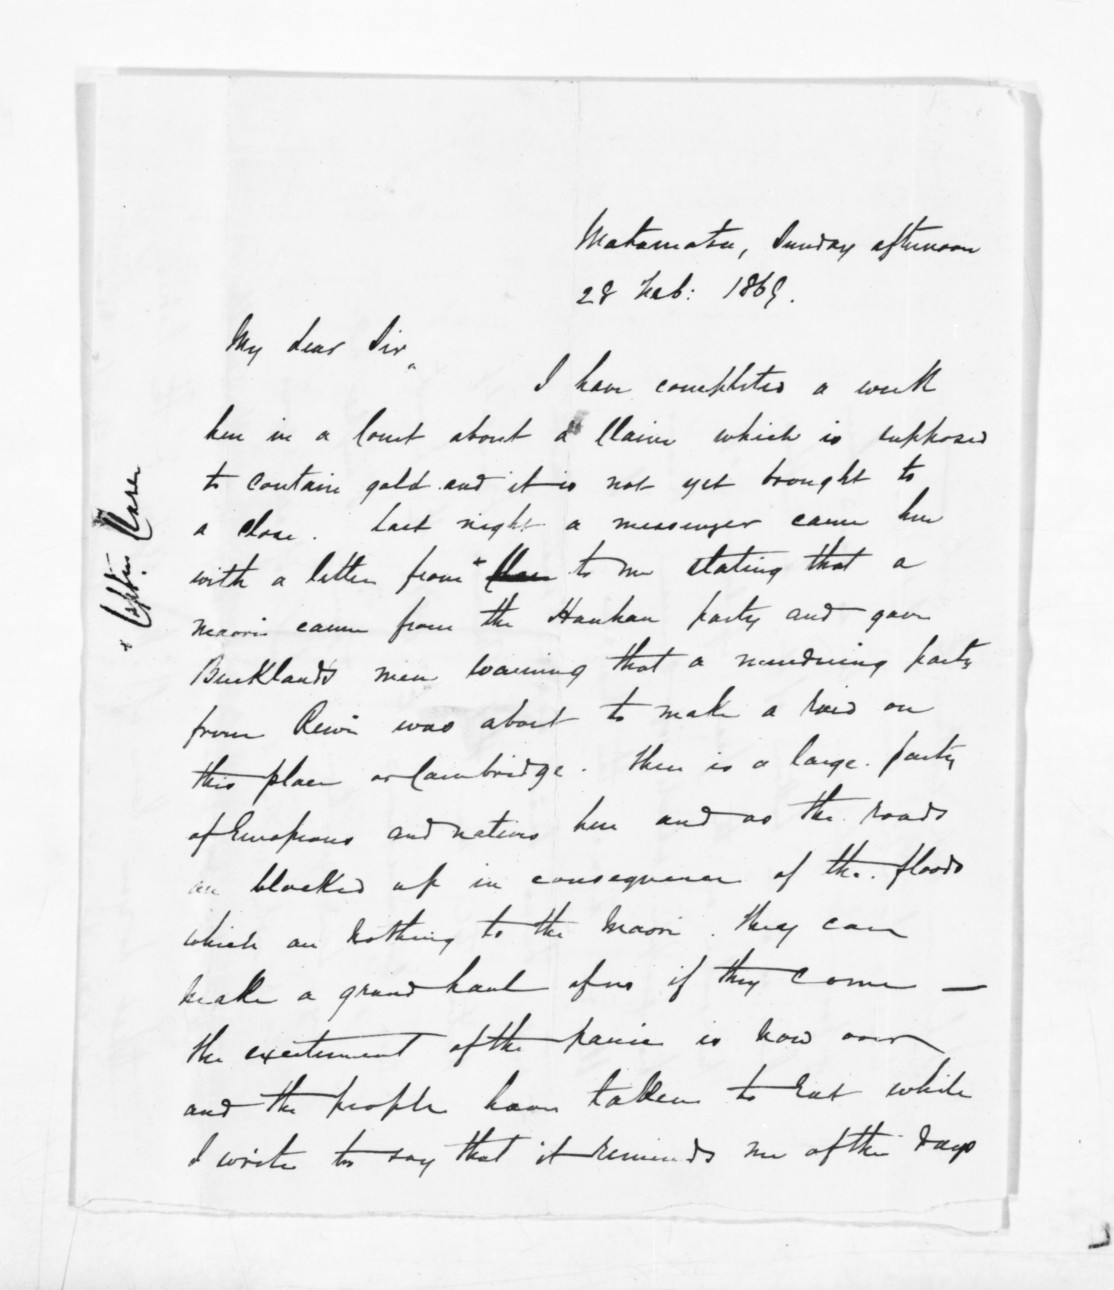 Matamata, Sunday afternoon
28 Feb: 1869.
My dear Sir,
I have completed a week
here in a Court about a Claim which is supposed
to contain gold and it is not yet brought to
a close. Last night a messenger came here
with a letter from + to me stating that a
maori came from the Hauhau party and gave
Buckland's men warning that a murdering party
from Rewi was about to make a raid on
this place or Cambridge. There is a large party
of Europeans and natives here and as the roads
are blocked up in consequence of the floods
which are nothing to the Maori. They can
make a grand haul of us if they come —
the excitement of the panic is now over
and the people have taken to eat while
I write to say that it reminds me of the days
+ Captn. Clare